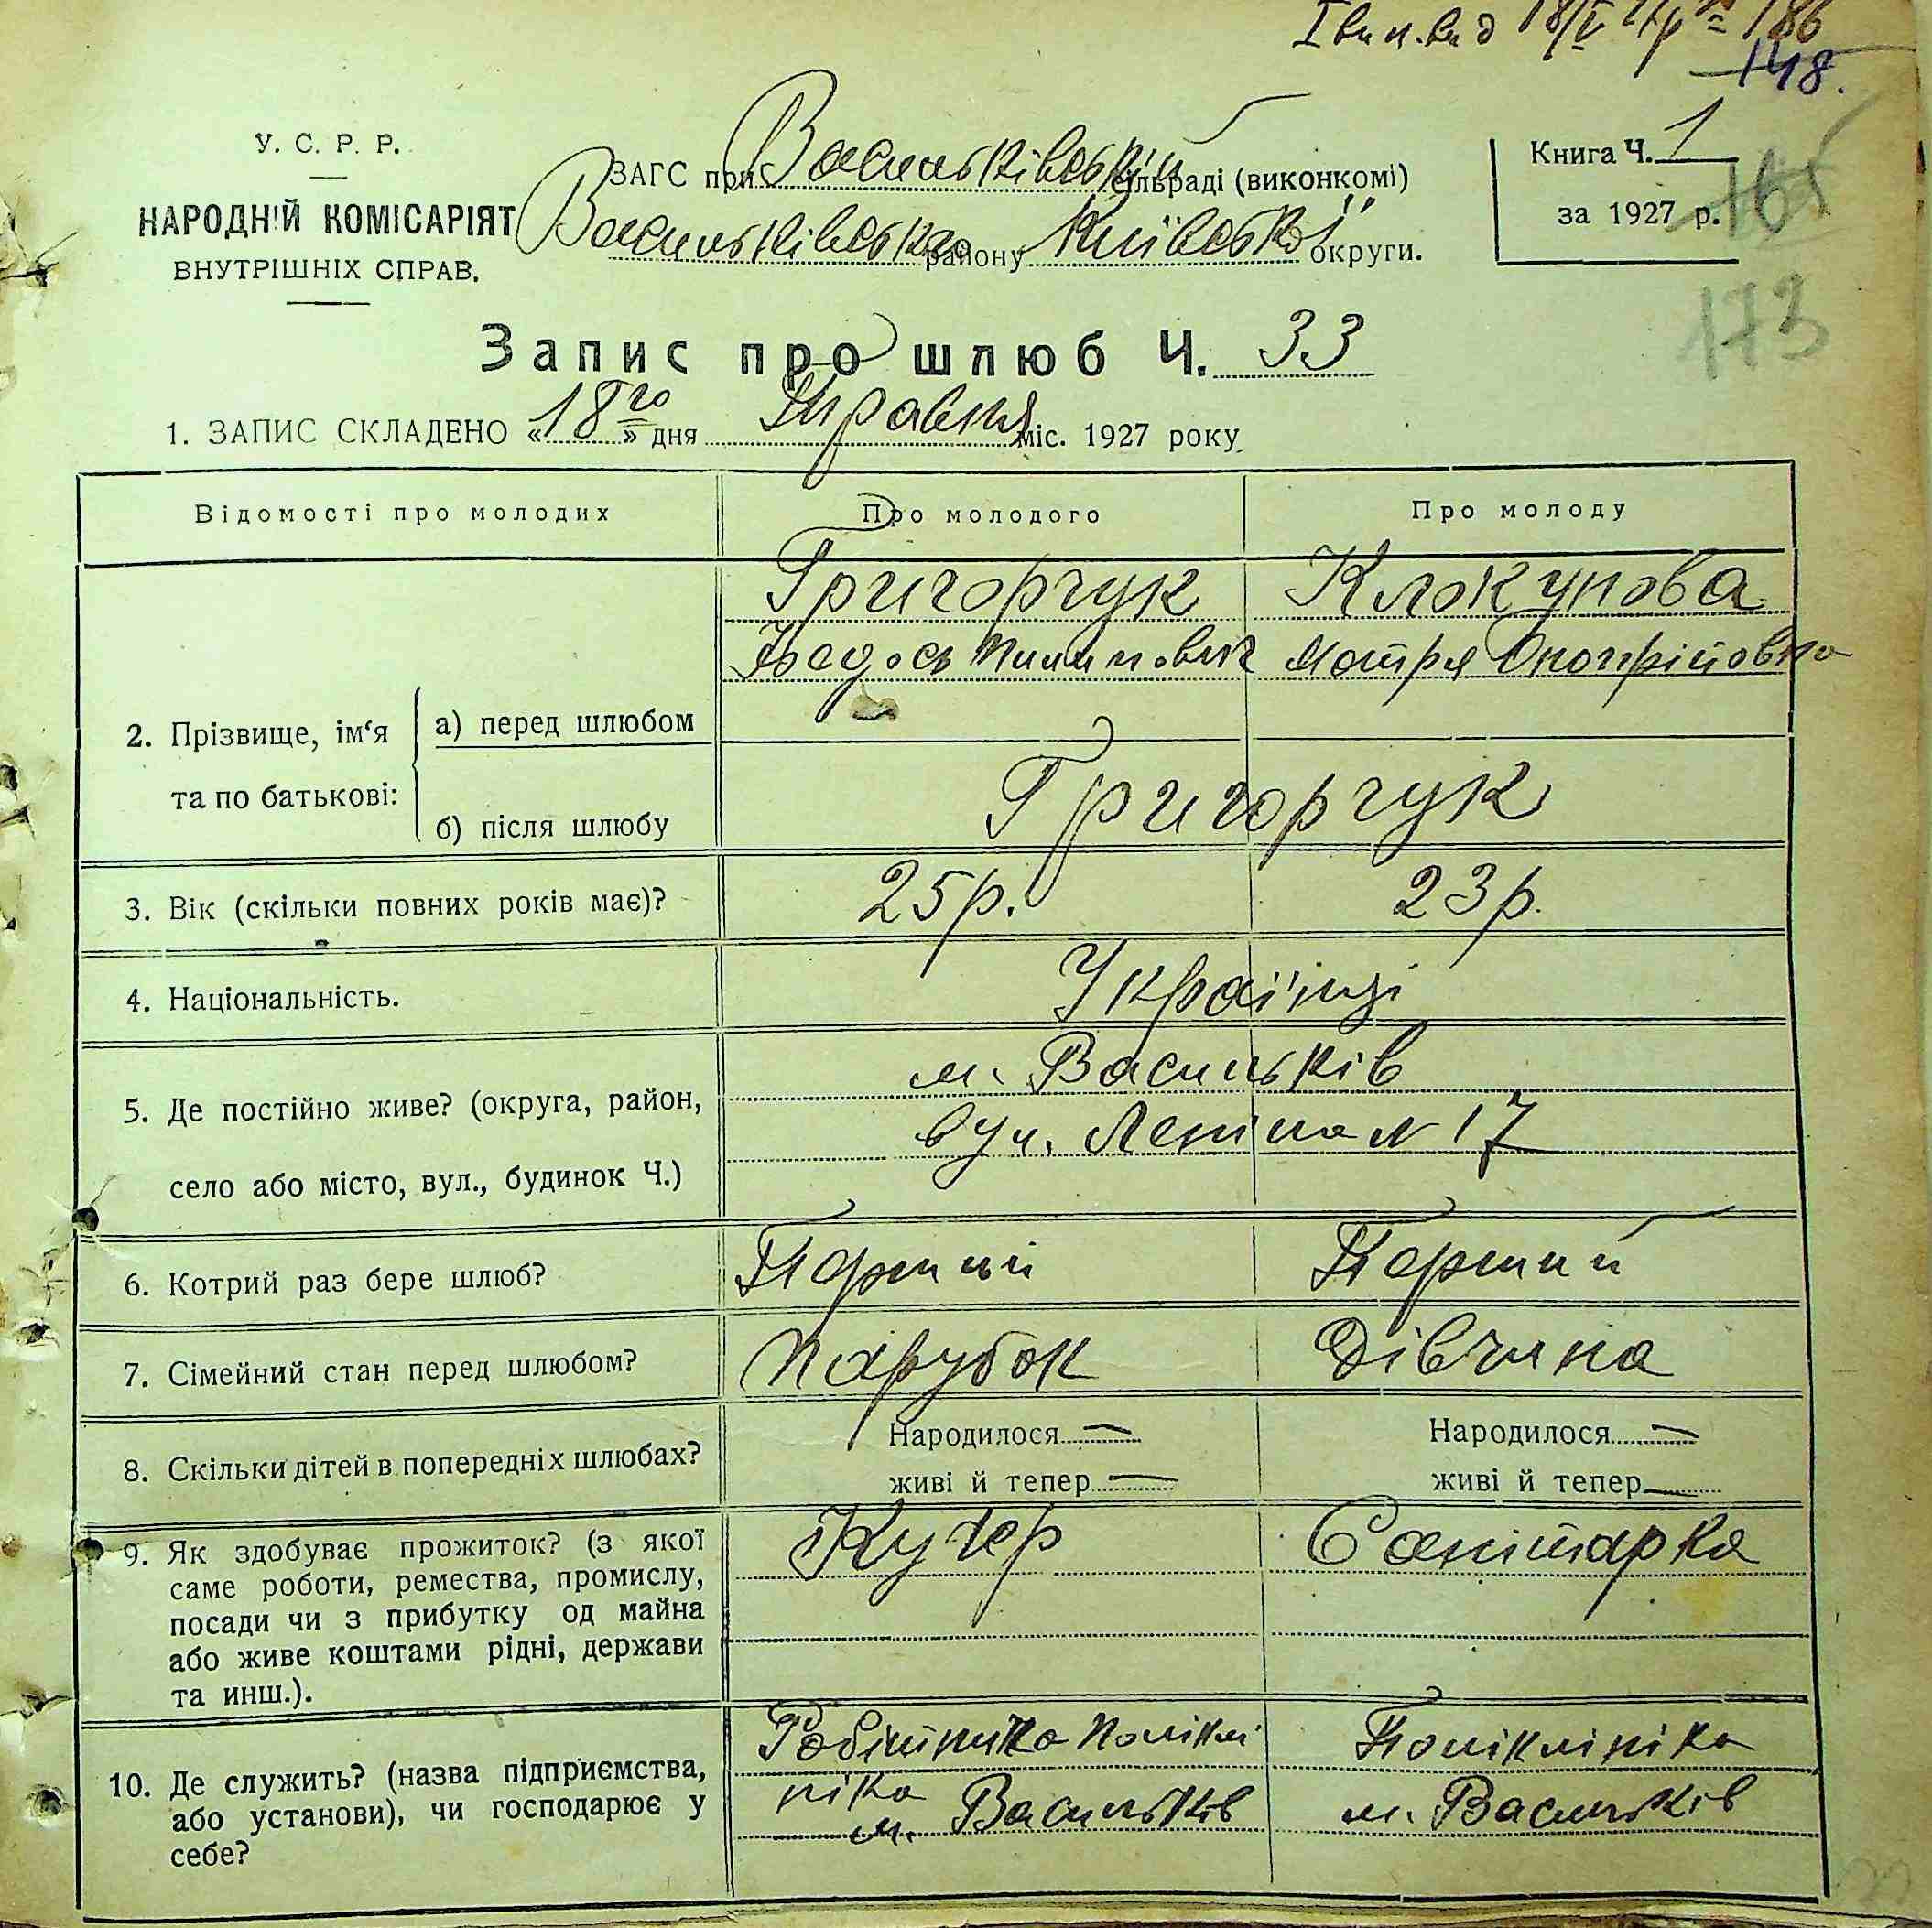 148.
У. С. Р. Р.
НАРОДНІЙ КОМІСАРІЯТ
ВНУТРІШНІХ СПРАВ.
ЗАГС при Васильківській сільраді (виконкомі)
Васильківського району Київської округи.
Книга Ч. 1
за 1927 р.
165
173
Запис про шлюб Ч. 33
1. ЗАПИС СКЛАДЕНО «18го» дня Травня міс. 1927 року
Відомості про молодих
Про молодого
Про молоду
2. Прізвище, ім'я та по батькові:
а) перед шлюбом
Григорчук
Федось Пилипович
Клокунова
Мотря Онопріівна
б) після шлюбу
Григорчук
3. Вік (скільки повних років має)?
25 р.
23 р.
4. Національність.
Українці
5. Де постійно живе? (округа, район,
село або місто, вул., будинок Ч.)
м. Васильків
вул. Леніна № 17
6. Котрий раз бере шлюб?
Перший
Перший
7. Сімейний стан перед шлюбом?
Парубок
Дівчина
8. Скільки дітей в попередніх шлюбах?
Народилося —
живі й тепер —
Народилося —
живі й тепер —
9. Як здобуває прожиток? (з якої
саме роботи, ремества, промислу,
посади чи з прибутку од майна
або живе коштами рідні, держави
та инш.).
Кучер
Санітарка
10. Де служить? (назва підприємства,
або установи), чи господарює у
себе?
Робітнича Поліклі
ніка
м. Васильків
Поліклініка
м. Васильків